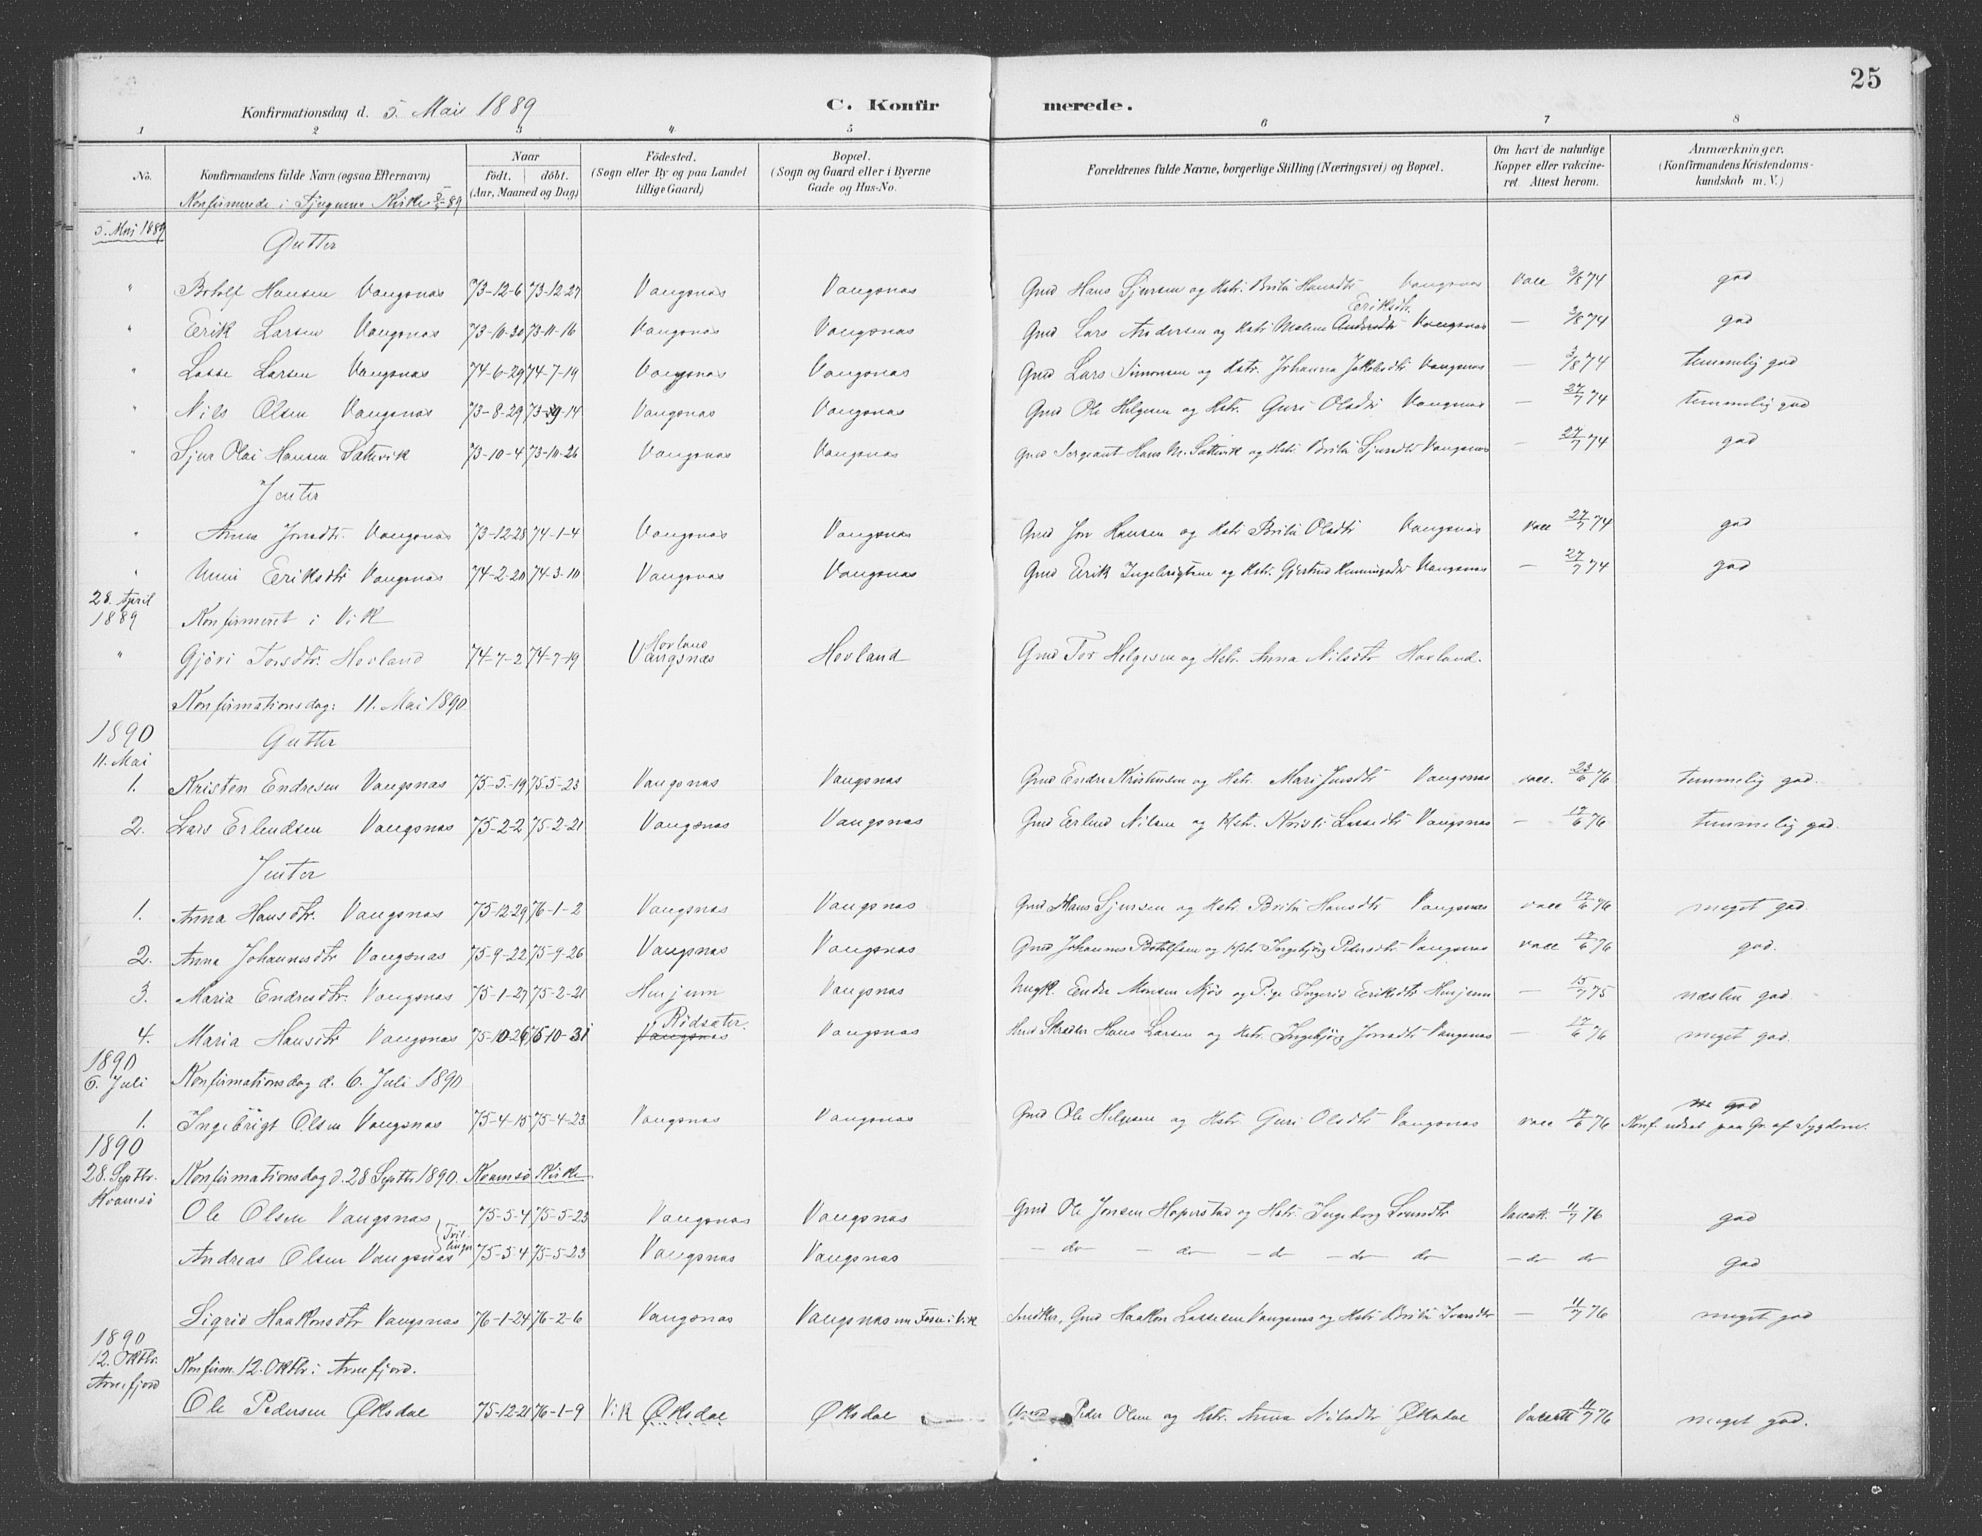 25
Konfirmationsdag d. 5. Mai 1889 C. Konfirmerede.
1 2 3 4 5 6 7 8
No. Konfirmandens fulde Navn (ogsaa Efternavn) Naar födt. döbt. (Aar, Maaned og Dag) Födested. (Sogn eller By og paa Landet tillige Gaard) Bopæl. (Sogn og Gaard eller i Byerne Gade og Hus-No. Forældrenes fulde Navne, borgerlige Stilling (Næringsvei) og Bopæl. Om havt de naturlige Kopper eller vakcineret. Attest herom. Anmærkninger. (Konfirmandens Kristendomskundskab m. V.)
Konfirmerede i Kirke 5/5 89
5. Mai 1889
Gutter
" Botolf Hansen Vangsnæs 73-12-6 73-12-27 Vangsnæs Vangsnæs Gmd Hans Sjursen og Hstr. Brita Hansdtr Vangsnæs vacc 3/8 74 god
" Erik Larsen Vangsnæs 73-10-30 73-11-16 Vangsnæs Vangsnæs Gmd Lars Andersen og Hstr Malene Andersdtr Eriksdtr. Vangsnæs — 3/8 74 god
" Lasse Larsen Vangsnæs 74-6-29 74-7-19 Vangsnæs Vangsnæs Gmd Lars Simonsen og Hstr. Johanna Jakobsdtr Vangsnæs — 3/8 74 temmelig god
" Nils Olsen Vangsnæs 73-8-29 73-9-14 Vangsnæs Vangsnæs Gmd Ole Helgesen og Hstr. Guri Olsdtr Vangsnæs — 27/7 74 temmelig god
" Sjur Olai Hansen Sættevik 73-10-4 73-10-26 Vangsnæs Vangsnæs Gmd Sergeant Hans M. Sættevik og Hstr Brita Sjursdtr Vangsnæs — 27/7 74 god
Jenter
" Anna Jonsdtr. Vangsnæs 73-12-28 74-1-4 Vangsnæs Vangsnæs Gmd Jon Hansen og Hstr Brita Olsdtr Vangsnæs vacc 27/7 74 god
" Unni Eriksdtr Vangsnæs 74-2-20 74-3-10 Vangsnæs Vangsnæs Gmd Erik Ingebrigtsen og Hstr. Gjertrud Henningsdtr Vangsnæs — 27/7 74 god
28. April
1889 Konfirmeret i Vik
" Gjöri Torsdtr. Hovland 74-7-2 74-7-19 Hovland Vangsnæs Hovland Gmd Tor Helgesen og Hstr. Anna Nilsdtr Hovland.
Konfirmationsdag: 11. Mai 1890.
1890 Gutter
11. Mai
1. Kristen Endresen Vangsnæs 75-5-19 75-5-23 Vangsnæs Vangsnæs Gmd Endre Kristensen og Hstr. Mari Jonsdtr Vangsnæs vacc. 23/6 76 temmelig god.
2. Lars Erlendsen Vangsnæs 75-2-2 75-2-21 Vangsnæs Vangsnæs Gmd Erlend Nilsen og Hstr. Kristi Lassedtr Vangsnæs — 17/6 76 temmelig god.
Jenter
1. Anna Hansdtr. Vangsnæs 75-12-29 76-1-2 Vangsnæs Vangsnæs Gmd Hans Sjursen og Hstr. Brita Hansdtr Vangsnæs vacc 17/6 76 meget god.
2. Anna Johannesdtr Vangsnæs 75-9-22 75-9-26 Vangsnæs Vangsnæs Gmd Johannes Botolfsen og Hstr Ingebjörg Pedersdtr Vangsnæs vacc 17/6 76 god.
3. Maria Endresdtr. Vangsnæs 75-1-27 75-2-21 Hurjum Vangsnæs Ungk. Endre Monsen Njös og Pige Ingerid Eriksdtr Hurjum — 15/7 75 næsten god
4. Maria Hansdtr Vangsnæs 75-10-26 75-10-31 Rödsæter. Vangsnæs Vangsnæs Skræder Hans Larsen og Hstr. Ingebjörg Jonsdtr Vangsnæs — 17/6 76 meget god.
1890
6. Juli Konfirmationsdag d. 6. Juli 1890
1. Ingebrigt Olsen Vangsnæs 75-4-15 75-4-23 Vangsnæs Vangsnæs Gmd Ole Helgesen og Hstr. Guri Olsdtr Vangsnæs vacc 17/6 76 god Konf. udsat paa Gr. af Sygdom.
1890
28. Septbr. Konfirmationsdag d. 28 Septbr 1890. Kvamsö Kirke
Kvamsö
Ole Olsen Vangsnæs 75-5-4 75-5-23 Vangsnæs Vangsnæs Gmd Ole Jonsen Hoperstad og Hstr. Ingeborg Ivarsdtr 11/7 76 god
Tvillinger
Andreas Olsen Vangsnæs 75-5-4 75-5-23 Vangsnæs Vangsnæs — do — do — do — do do — do do god
Sigrid Haakonsdtr Vangsnæs 76-1-24 76-2-6 Vangsnæs Vangsnæs nu i Vik Snedker, Gmd Haakon Lassesen Vangsnæs og Hstr Brita Ivarsdtr — 11/7 76 meget god
1890
12. Oktbr. Konfirm. 12. Oktbr. i Arnefjord.
Arnefjord
Ole Pedersen Øksdal 75-12-21 76-1-9 Vik Øksdal Øksdal Gmd Peder Olsen og Hstr. Anna Nilsdtr Øksdal 11/7 76 meget god.